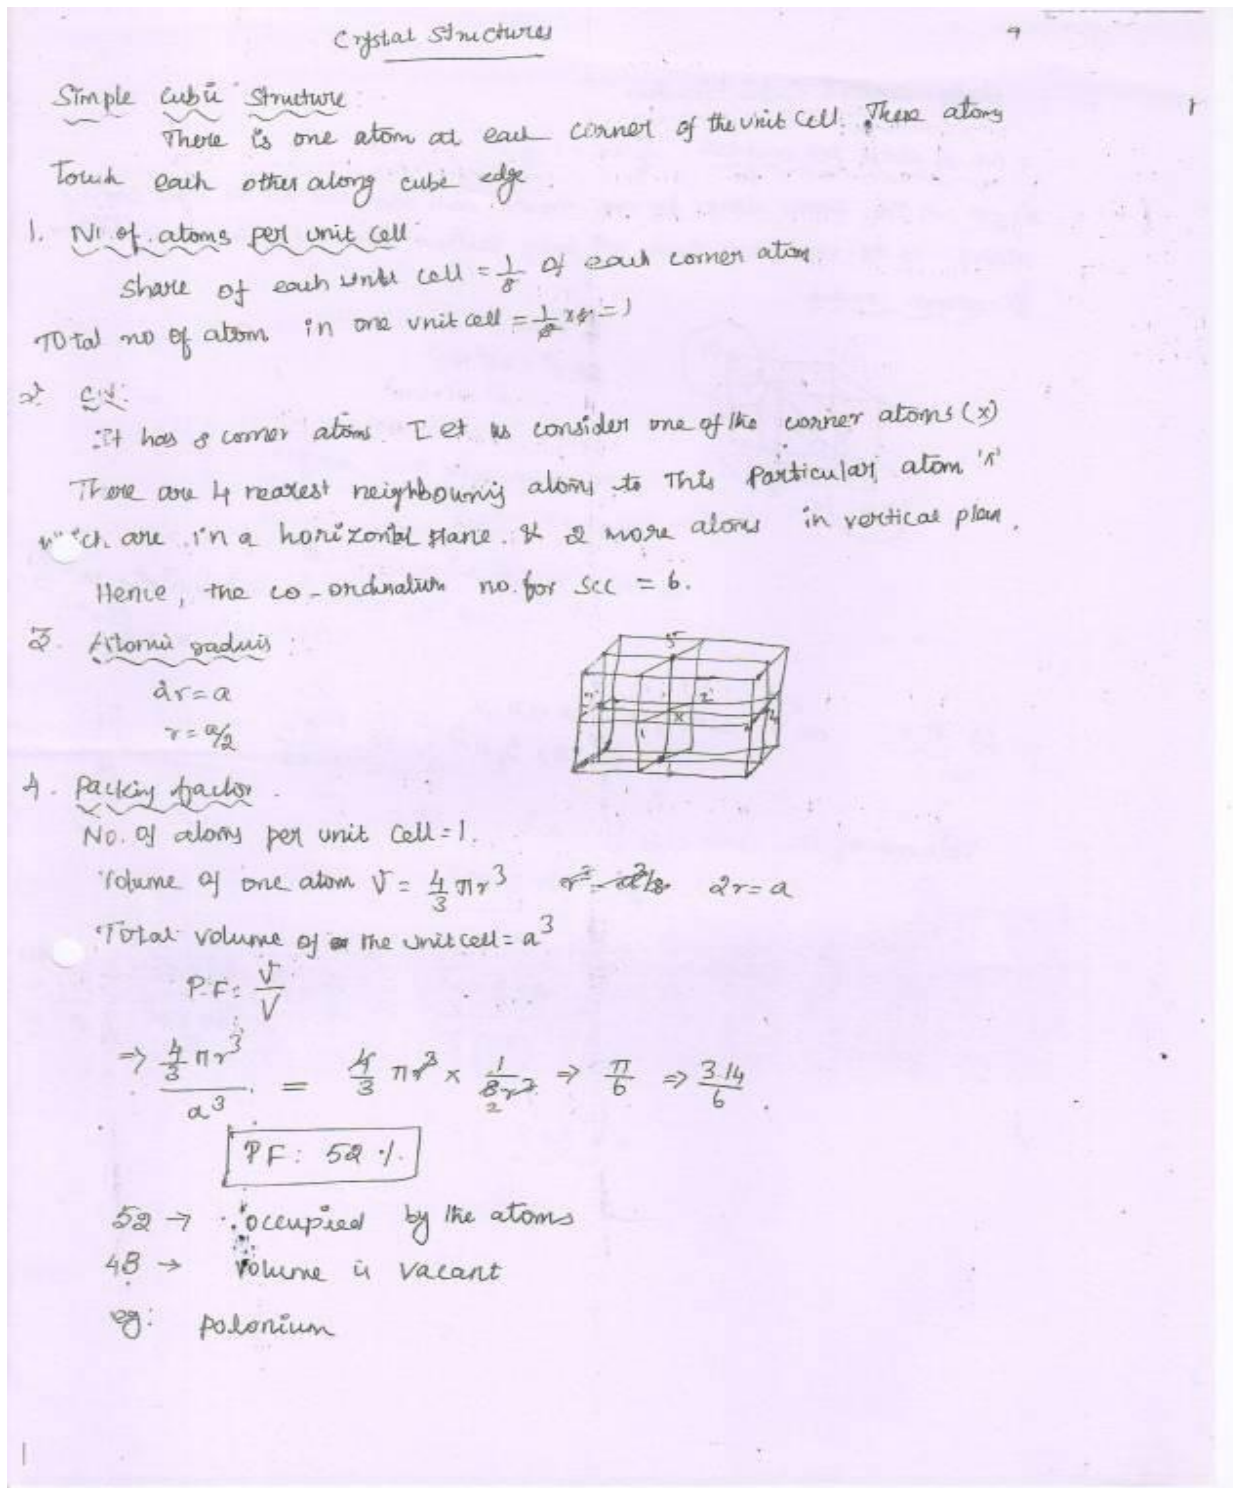 Crystal Structures
Simple Cubic Structure:
There is one atom at each corner of the unit cell. These atoms
Touch each other along cube edge.
1. No of atoms per unit cell
Share of each unit cell = 1/8 of each corner atom
Total no of atom in one unit cell = 1/8 × 8 = 1
2. C.N:
It has 8 corner atoms. Let us consider one of the corner atoms (x)
There are 4 nearest neighbouring atoms to This Particular atom 'x'
which are in a horizontal plane. & 2 more atoms in vertical plan.
Hence, the co-ordination no. for scc = 6.
3. Atomic radius:
2r = a
r = a/2
5
2
x
1
4. Packing factor.
No. of atoms per unit cell = 1.
Volume of one atom v = 4/3 πr³ 2r = a
Total volume of the unit cell = a³
P.F: v/V
⇒ 4/3 πr³ / a³ = 4/3 πr³ × 1/8r³ ⇒ π/6 ⇒ 3.14/6
2
PF: 52 %.
52 → occupied by the atoms
48 → Volume is vacant
eg: polonium